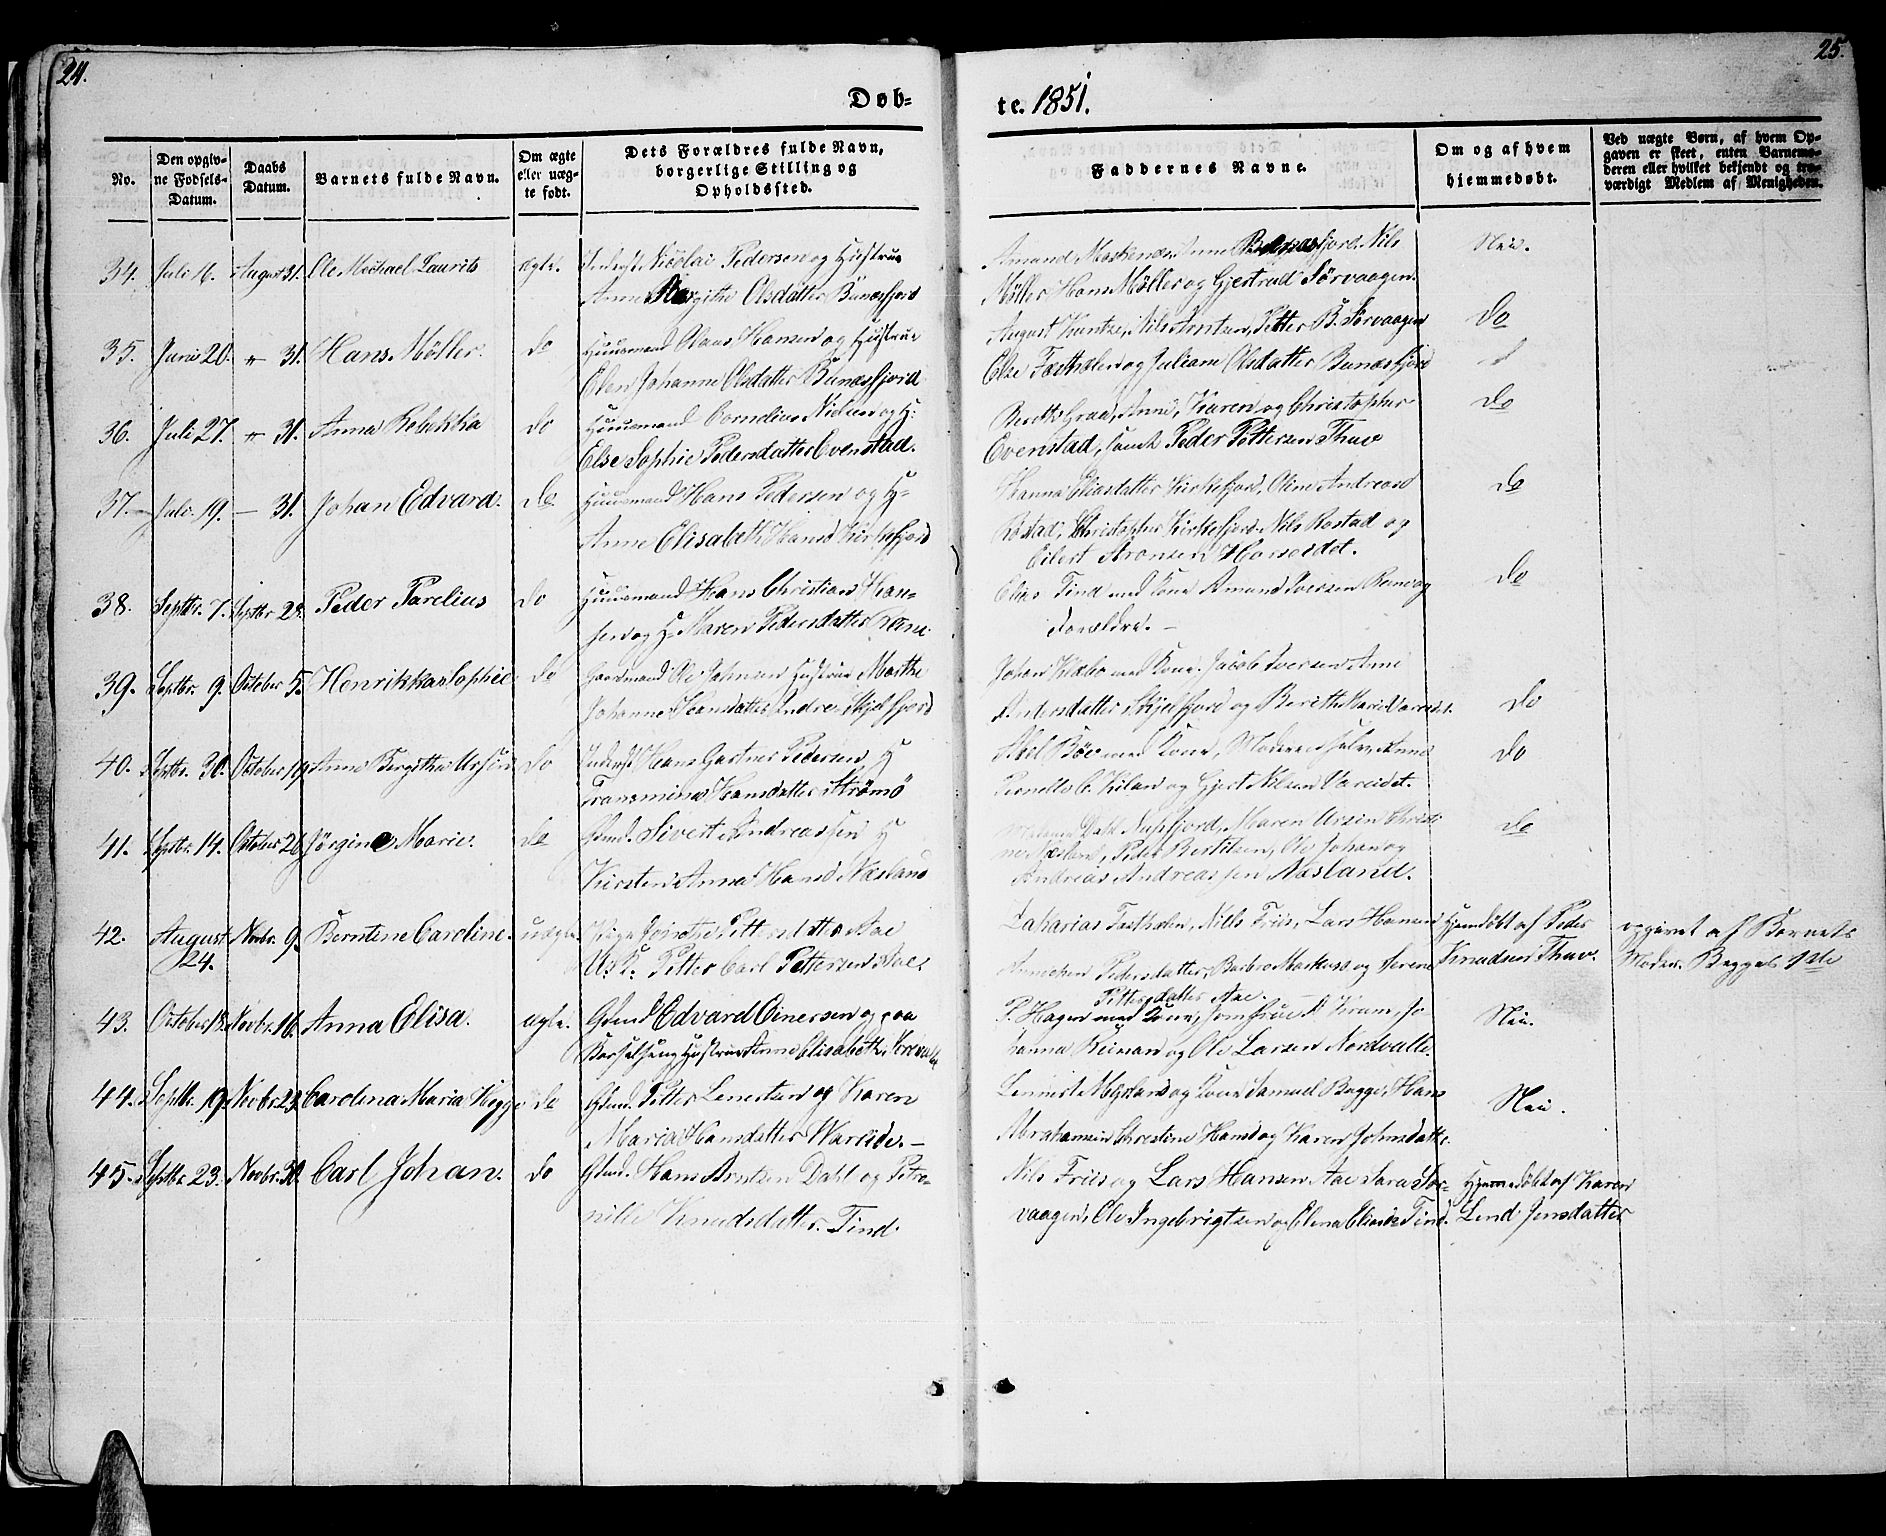 24.
25.
Døb-
te. 1851.
No.
Den opgiv-
ne Fødsels-
Datum.
Daabs
Datum.
Barnets fulde Navn.
Om ægte
eller uæg-
te født.
Dets Forældres fulde Navn,
borgerlige Stilling og
Opholdssted.
Faddernes Navne.
Om og af hvem
hjemmedøbt.
Ved uægte Børn, af hvem Op-
gaven er skeet, enten Barnemo-
deren eller hvilket bekjendt og tro-
værdigt Medlem af Menigheden.
34. Juli 6. August 31. Ole Michael Laurits ægte. Nicolai Pedersen og Hustrue
Anne Olsdatter Bunæsfjord
Amand Anne Bunæsfjord. Nils
Møller, Hans Møller og Gjertrud Sørvaagen.
Nei.
35. Juni 20. " 31. Hans Møller. do Huusmand Claus Hansen og Hustrue
Elen Johanne Olsdatter Bunæsfjord
August Kuntze, Nils Arntsen, Petter B. Sørvaagen
Else og Juliane Olsdatter Bunæsfjord
do
36. Juli 27. " 31. Anna Rebekka do Huusmand Cornelius Nielsen og H:
Else Sophie Pedersdatter Evenstad.
Graa, Anne, Karen og Christopher
Evenstad, samt Peder Pettersen Thuv
do
37. Juli 19. — 31. Johan Edvard. do Huusmand Hans Pedersen og H-
Anne Elisabeth Hansd Kirkefjord
Hanna Eliasdatter Kirkefjord, Oline Andreasd
Rostad, Christopher Kirkefjord. Nils Rostad og
Eilert Aronsen Horseidet.
do
38. Septbr. 7. Septbr 28. Peder Parelius do Huusmand Hans Christian Han-
sen og H- Maren Pedersdatter Reine.
Elias Tind med Kone Amund Iversen Reine og
Forældre. —
do
39. Septbr. 9. October 5. Henrikka Sophie do Gaardmand Ole Johnsen Hustrue Marthe
Johanne Hansdatter Indre Skjelfjord
Johan med Kone. Jacob Iversen Anne
Andersdatter Skjelfjord og Berith Marie Vareidet.
do
40. Septbr. 30. October 19. Anne Bergitha do Hans Gartner Pedersen H
Fransmine Hansdatter Strømø
Abel Bøe med Kone, Moderen selv, Anne
Pernelle C. og Gjert Nilsen Vareidet.
do
41. Septbr. 14. October 26. Jørgine Marie. do Gbmd. Sivert Andreassen H
Kirsten Anna Hansd Næsland
Dahl Nufsfjord, Maren Ursin
Næsland, Peder Bertilsen, Ole Johan og
Andreas Andreassen Næsland.
do
42. August
24. Novbr. 9. Berntine Caroline. uægte. Pige Pettersdatter Aae
U. K. Petter Carl Pettersen Aae.
Zakarias Nills Friis, Lars Hansen
Pedersdatter, Barbro Markusd og Serene
Pettersdatter Aae.
Hjemdøbt af Peder
Knudsen Thuv.
opgivet af Barnets
Moder. Begges 1ste
43. October 13. Novbr. 16. Anna Elisa. ægte. Gbmd Edvard Einersen og paa
Barselseng Hustrue Anne Elisabeth.
P. Hagen med Kone, Jomfrue D. Kram, Jo-
hanna og Ole Larsen Nordvalle.
Nei.
44. Septbr. 19. Novbr. 23. Carolina Maria do Gbmd. Petter Lenertsen og Karen
Maria Hansdatter Wareide. —
Lennert og Kone Samuel Bugge, Hans
Abrahamsen Christine Hansd og Karen Johnsdatter.
Nei.
45. Septbr. 23. Novbr. 30. Carl Johan. do Gbmd. Hans Arntsen Dahl og Petro-
nille Knudsdatter. Tind
Nils Friis og Lars Hansen Aae Sara Sør-
vaagen, Ole Ingebrigtsen og Elena Eliasd Tind.
Hjemmedøbt af Karen
Lend Jensdatter